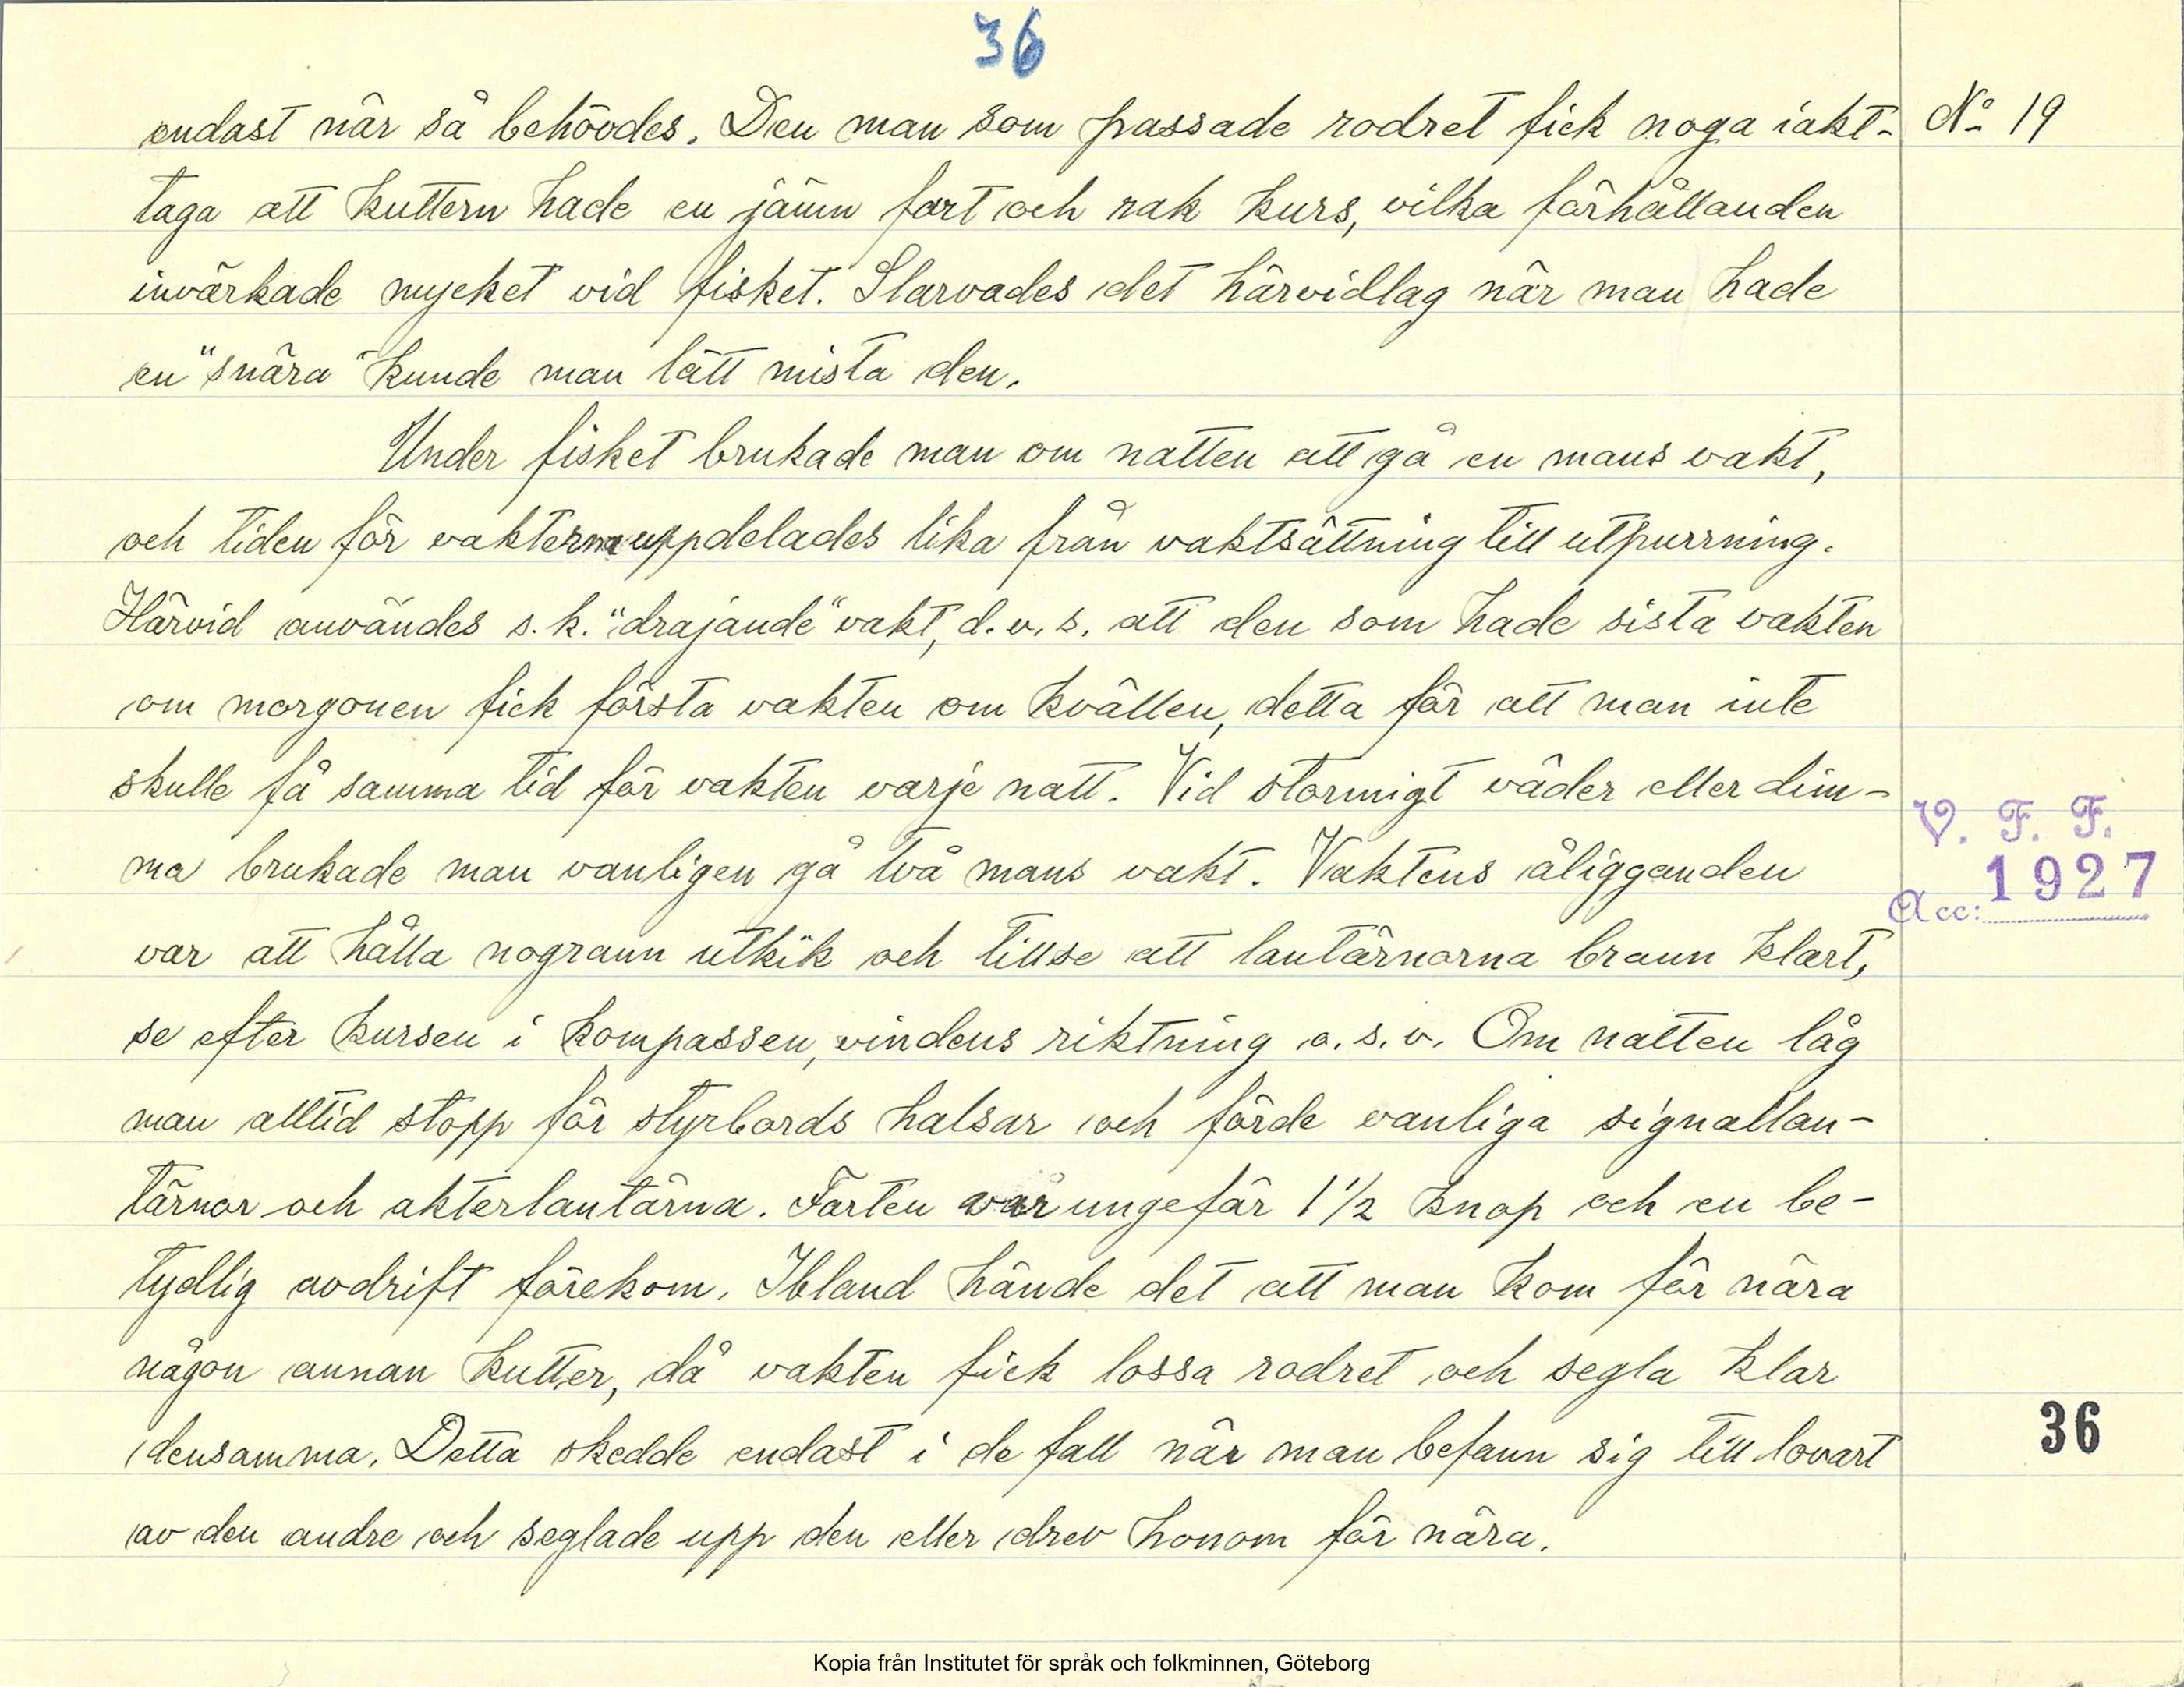 36
endast när så behövdes. Den man som passade rodret fick noga iakt-
No 19
taga att kuttern hade en jämn fart och rak kurs, vilka förhållanden
invärkade mycket vid fisket. Slarvades det härvidlag när man hade
en "snära" kunde man lätt mista den.
Under fisket brukade man om natten att gå en mans vakt,
och tiden för vakterna uppdelades lika från vaktsättning till utpurrning.
Härvid användes s.k. "drajande" vakt, d.v.s. att den som hade sista vakten
om morgonen fick första vakten om kvällen, detta för att man inte
skulle få samma tid för vakten varje natt. Vid stormigt väder eller dim-
V. F. F.
ma brukade man vanligen gå två mans vakt. Vaktens åligganden
1927
Acc:
var att hålla nograun utkik och tillse att lantärnorna brann klart,
se efter kursen i kompassen, vindens riktning o.s.v. Om natten låg
man alltid stopp för styrbords halsar och förde vanliga signallan-
tärnor och akterlantärna. Farten var ungefär 1 1/2 knop och en be-
tydlig avdrift förekom. Ibland hände det att man kom för nära
någon annan kutter, då vakten fick lossa rodret och segla klar
densamma. Detta skedde endast i de fall när man befann sig till lovart
36
av den andre och seglade upp den eller drev honom för nära.
Kopia från Institutet för språk och folkminnen, Göteborg